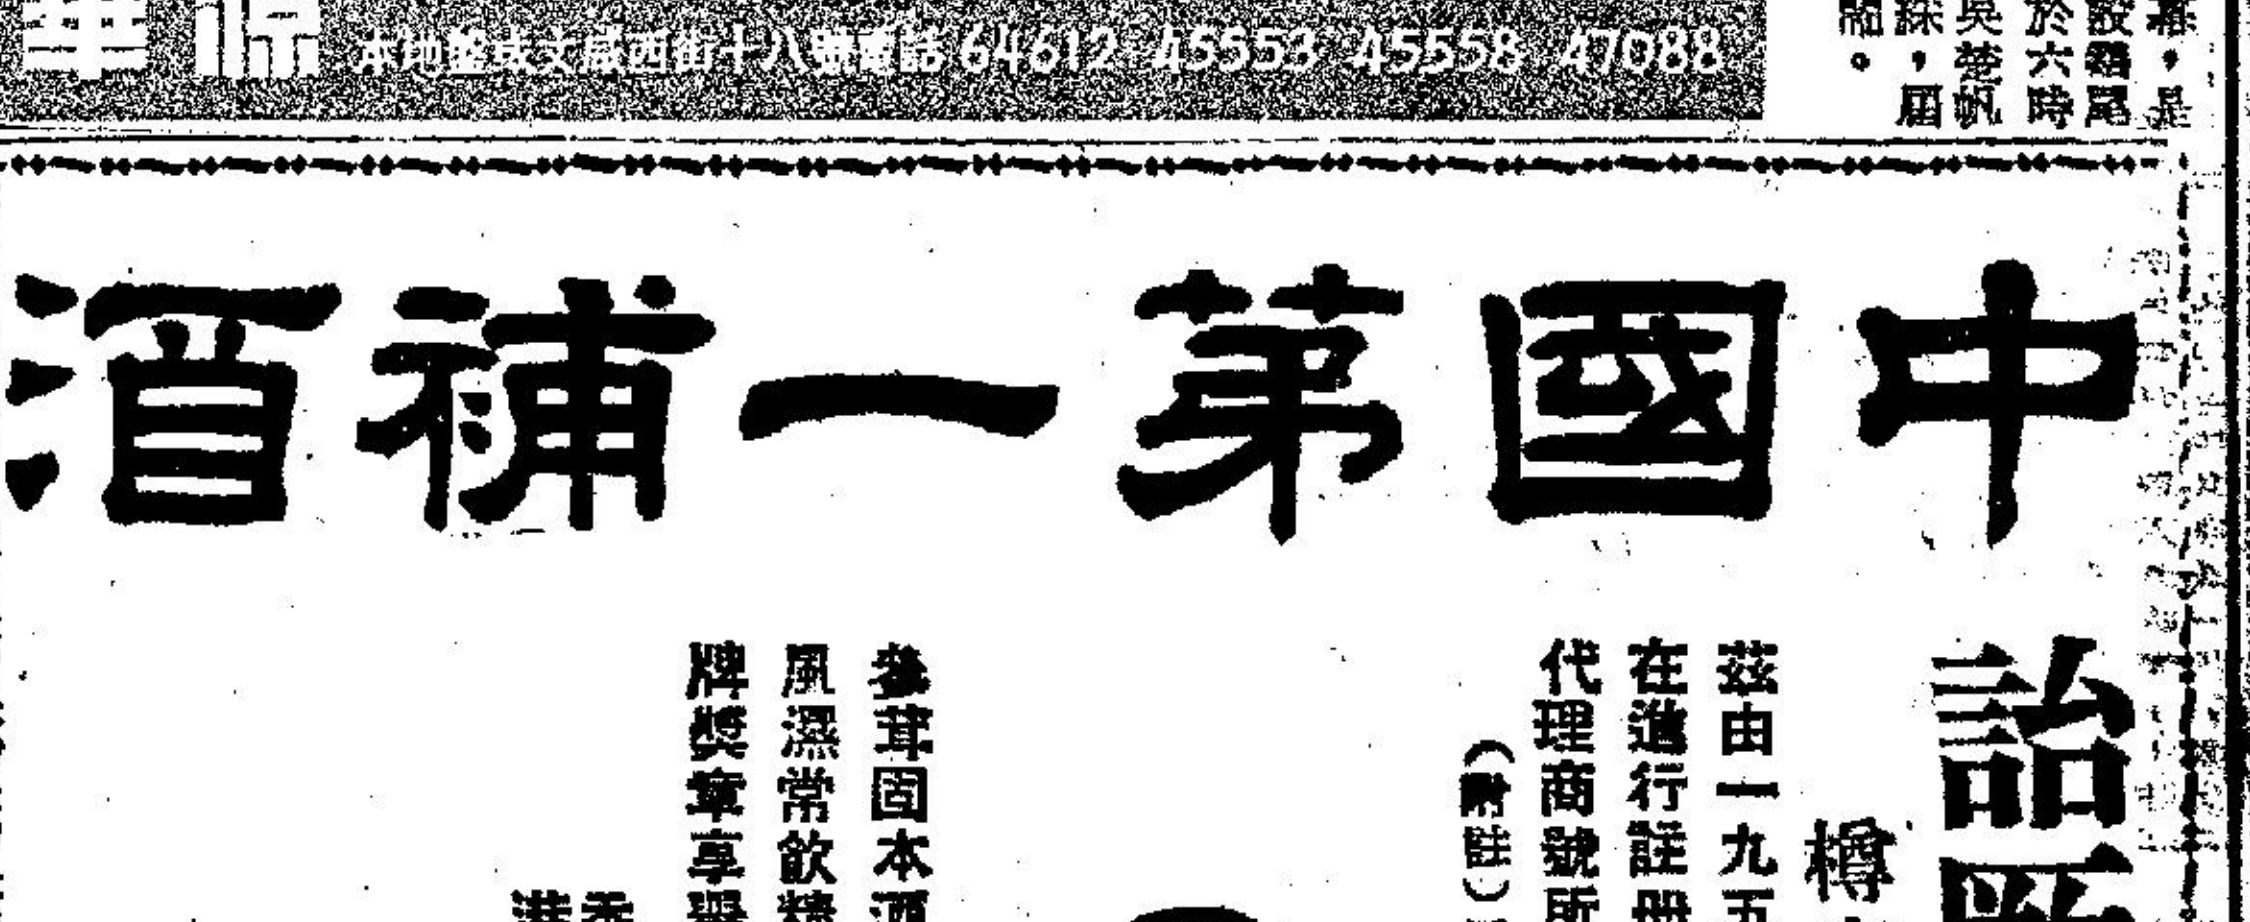 本地盤或文咸西街十八號電話 64612 45553 45558 47088
幕，是
設龍尾
於六時
吳楚帆
綵，屆
中國第一補酒
詒
樽
茲由一九五
在進行註册
代理商號所
（附註）
參茸固本酒
風濕常飲精
牌獎章享譽